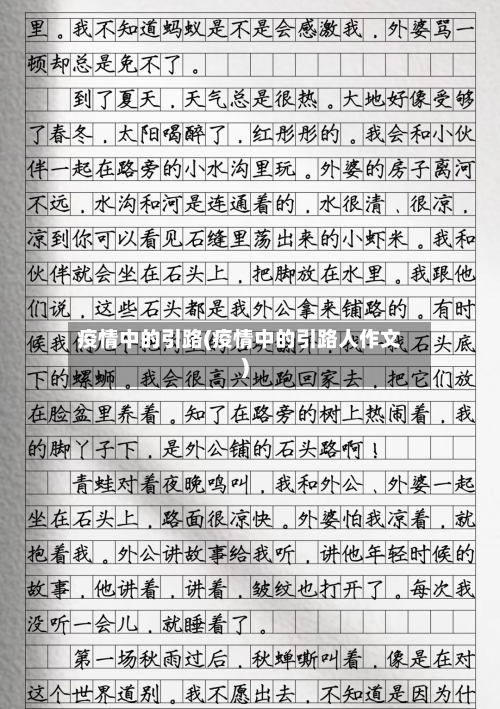 里。我不知道蚂蚁是不是会感激我，外婆骂一
顿却总是免不了。
到了夏天，天气总是很热。大地好像受够
了春冬，太阳喝醉了，红彤彤的。我会和小伙
伴一起在路旁的小水沟里玩。外婆的房子离河
不远，水沟和河是连通着的，水很清、很凉，
凉到你可以看见石缝里荡出来的小虾米。我和
伙伴就会坐在石头上，把脚放在水里。我跟他
们说，这些石头都是我外公拿来铺路的。有时
候我们
石头底
疫情中的引路(疫情中的引路人作文
)
下的螺蛳。我会很高兴地跑回家去，把它们放
在脸盆里养着。知了在路旁的树上热闹着，我
的脚丫子下，是外公铺的石头路啊！
青蛙对着夜晚鸣叫，我和外公、外婆一起
坐在石头上，路面很凉快。外婆怕我凉着，就
抱着我。外公讲故事给我听，讲他年轻时候的
故事，他讲着，讲着，皱纹也打开了。每次我
没听一会儿，就睡着了。
第一场秋雨过后，秋蝉嘶叫着，像是在对
这个世界道别。我不愿出去，不知道是因为什